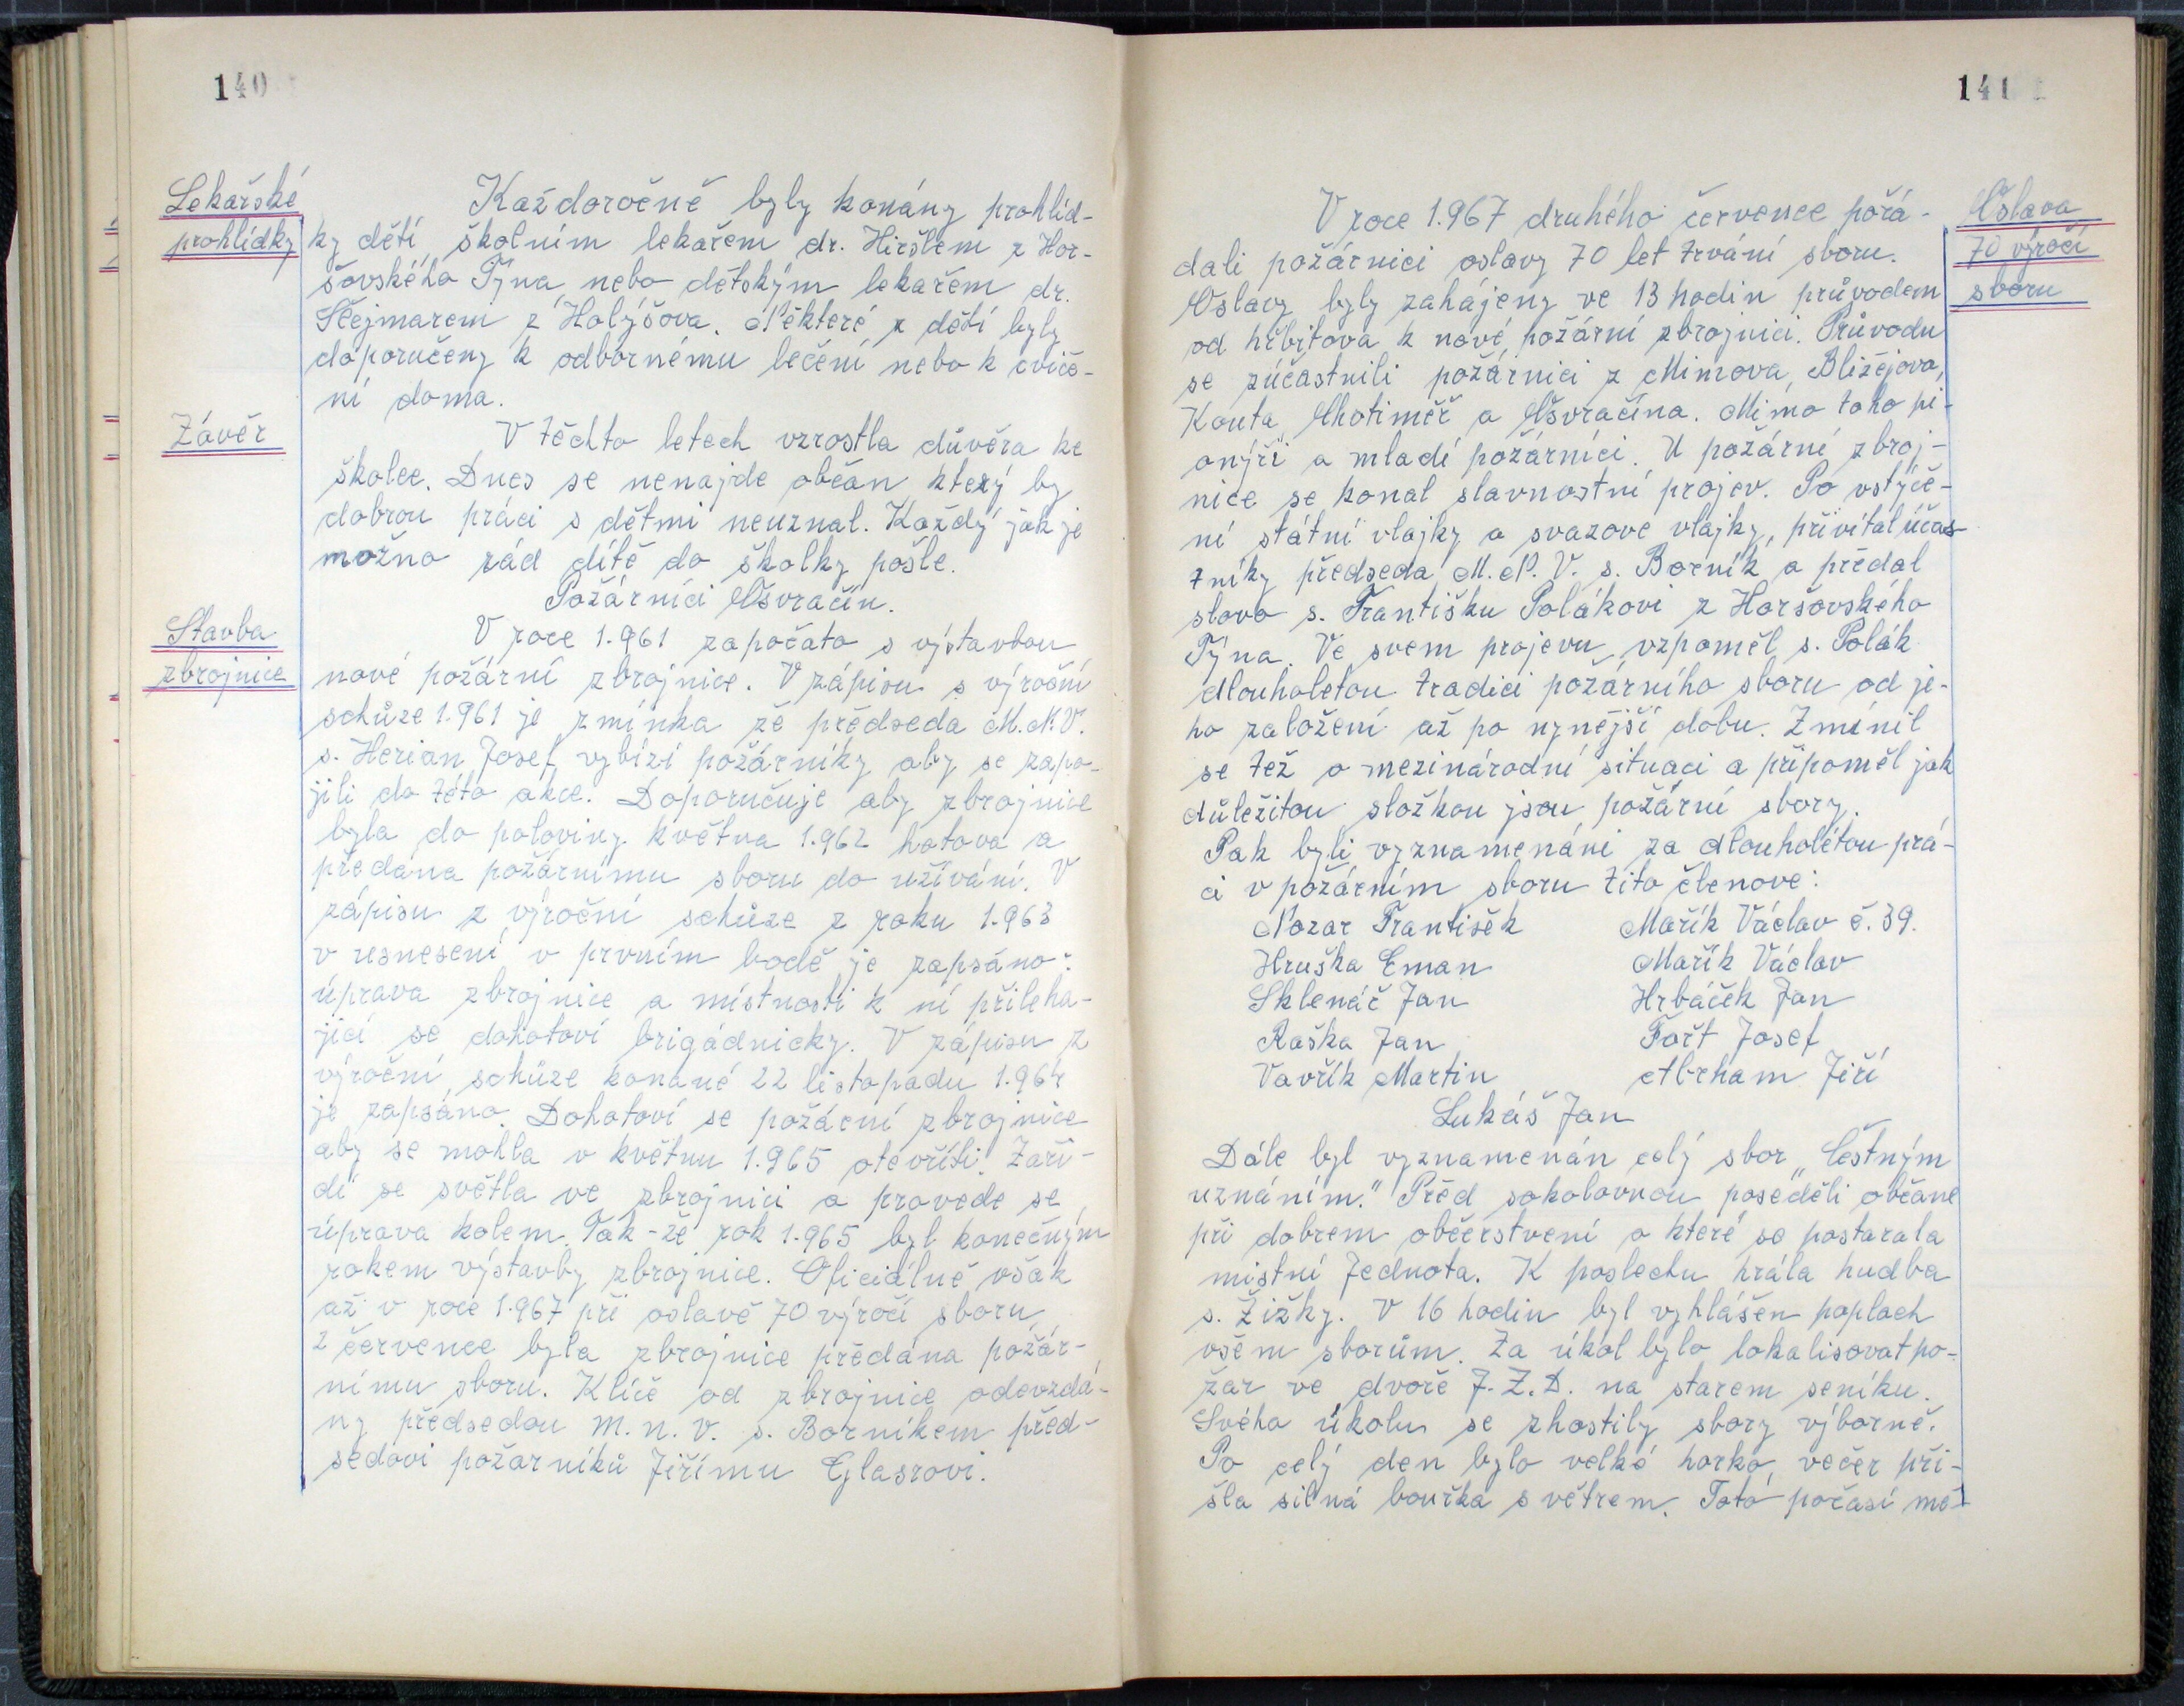 140
Lekařské
prohlídky
Každoročně byly konány prohlíd-
ky dětí, školním lekařem dr. Hiršlem z Hor-
šovského Týna nebo dětským lekařem dr.
Šlejmarem z Holýšova. Některé z dětí byly
doporučeny k odbornému lečení nebo k cviče-
ní doma.
Závěr
V těchto letech vzrostla důvěra ke
školce. Dnes se nenajde občan který by
dobrou práci s dětmi neuznal. Každý jak je
možno rád dítě do školky pošle.
Požárníci Osvračín.
Stavba
zbrojnice
V roce 1.961 započato s výstavbou
nové požární zbrojnice. V zápisu s výroční
schůze 1.961 je zmínka že předseda M.N.V.
s. Herian Josef vybízí požárníky aby se zapo-
jili do této akce. Doporučuje aby zbrojnice
byla do poloviny května 1.962 hotova a
předána požárnímu sboru do užívání. V
zápisu z výroční schůze z roku 1.963
v usnesení v prvním bodě je zapsáno:
úprava zbrojnice a místnosti k ní přileha-
jící se dohotoví brigádnicky. V zápisu z
výroční schůze konané 22 listopadu 1.964
je zapsáno. Dohotoví se požární zbrojnice
aby se mohla v květnu 1.965 otevříti. Zaří-
dí se světla ve zbrojnici a provede se
úprava kolem. Tak-že rok 1.965 byl konečným
rokem výstavby zbrojnice. Oficiálně však
až v roce 1.967 při oslavě 70 výročí sboru
2 července byla zbrojnice předána požár-
nímu sboru. Klíče od zbrojnice odevzdá-
ny předsedou M.n.V. s. Borníkem před-
sedovi požárníků Jiřímu Glasrovi.
141
Oslava
70 výročí
sboru
V roce 1.967 druhého července pořá-
dali požárnici oslavy 70 let trvání sboru.
Oslavy byly zahájeny ve 13 hodin průvodem
od hřbitova k nové požární zbrojnici. Průvodu
se zúčastnili požárnici z Mimova, Blížejova,
Kouta, Chotiměř a Osvračína. Mimo toho pi-
onýři a mladí požárníci. U požární zbroj-
nice se konal slavnostní projev. Po vstýče-
ní státní vlajky a svazove vlajky, přivítal účas
tníky předseda M.N.V. s. Borník a předal
slovo s. Františku Polákovi z Horšovského
Týna. Ve svem projevu vzpoměl s. Polák
dlouholetou tradici požárního sboru od je-
ho založení až po nynější dobu. Zmínil
se též o mezinárodní situaci a připoměl jak
důležitou složkou jsou požární sbory.
Pak byli vyznamenáni za dlouholetou prá-
ci v požárním sboru tito členove:
Nozar František Mařík Václav č. 39.
Hruška Eman Mařík Václav
Sklenář Jan Hrbáček Jan
Raška Jan Fořt Josef
Vavřík Martin Abrham Jiří
Lukáš Jan
Dále byl vyznamenán celý sbor „Čestným
uznáním." Před sokolovnou poseděli občane
při dobrem občerstvení o které se postarala
místní Jednota. K poslechu hrála hudba
s. Žižky. V 16 hodin byl vyhlášen poplach
všem sborům. Za úkol bylo lokalisovat po-
žar ve dvoře J.Z.D. na starem seníku.
Svého úkolu se zhostily sbory výborně.
Po celý den bylo velké horko, večer při-
šla silná bouřka s větrem. Toto počasí mě-